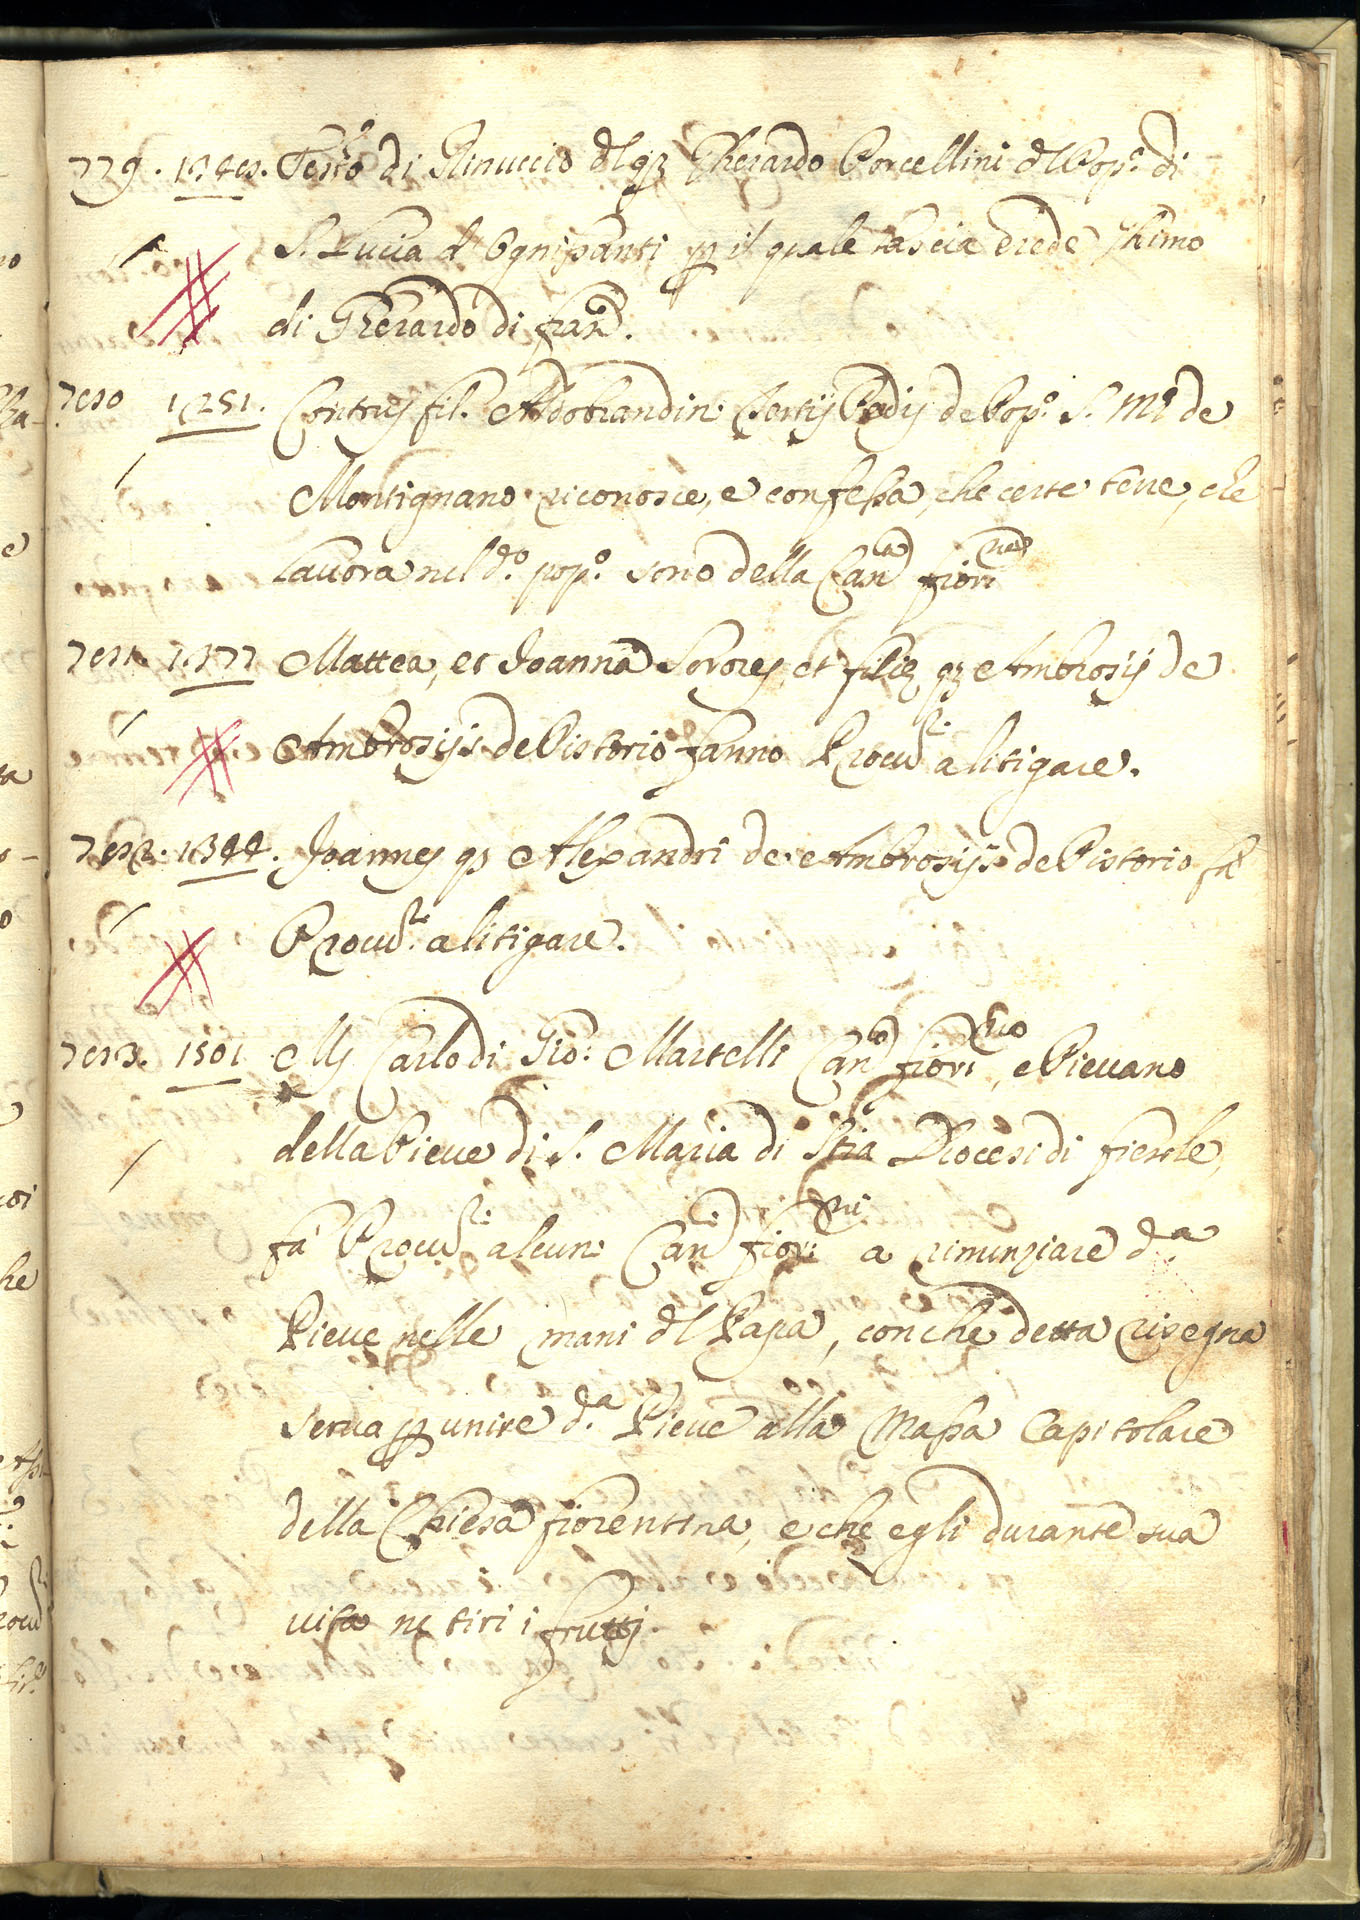 779. 1348. Testo di Vanuccio dl qz Gherardo Porcellini dl Popo: di
S. Lucia d' Ognisanti p il quale lascia erede Primo
di Gherardo di
780 1251. filo: Aldobrandin de Popo: S. Mo de
Montignano riconosce, e confessa, che certe terre, che
lavora nel do: popo: sono della Cana fiorna
781. 1377 Mattea, et Joanna Sorores, et filie qz Ambrosij de
Ambrosijs de Pistorio fanno Procur: a litigare.
782. 1344. Joannes qz Alexandri de Ambrosijs de Pistorio fà
Procur: a litigare.
783. 1501 Ms Carlo di Gio: Martelli Cano fiorno, e Pievano
della Pieve di S. Maria di Stia Diocesi di fiesole,
fà Procur: alcuni Cani fiorni a rinunziare da
Pieve nelle mani dl Papa, con che detta risegna
serva p unire da Pieve alla Massa Capitolare
della Chiesa fiorentina, e che egli durante sua
vita ne tiri i frutti.